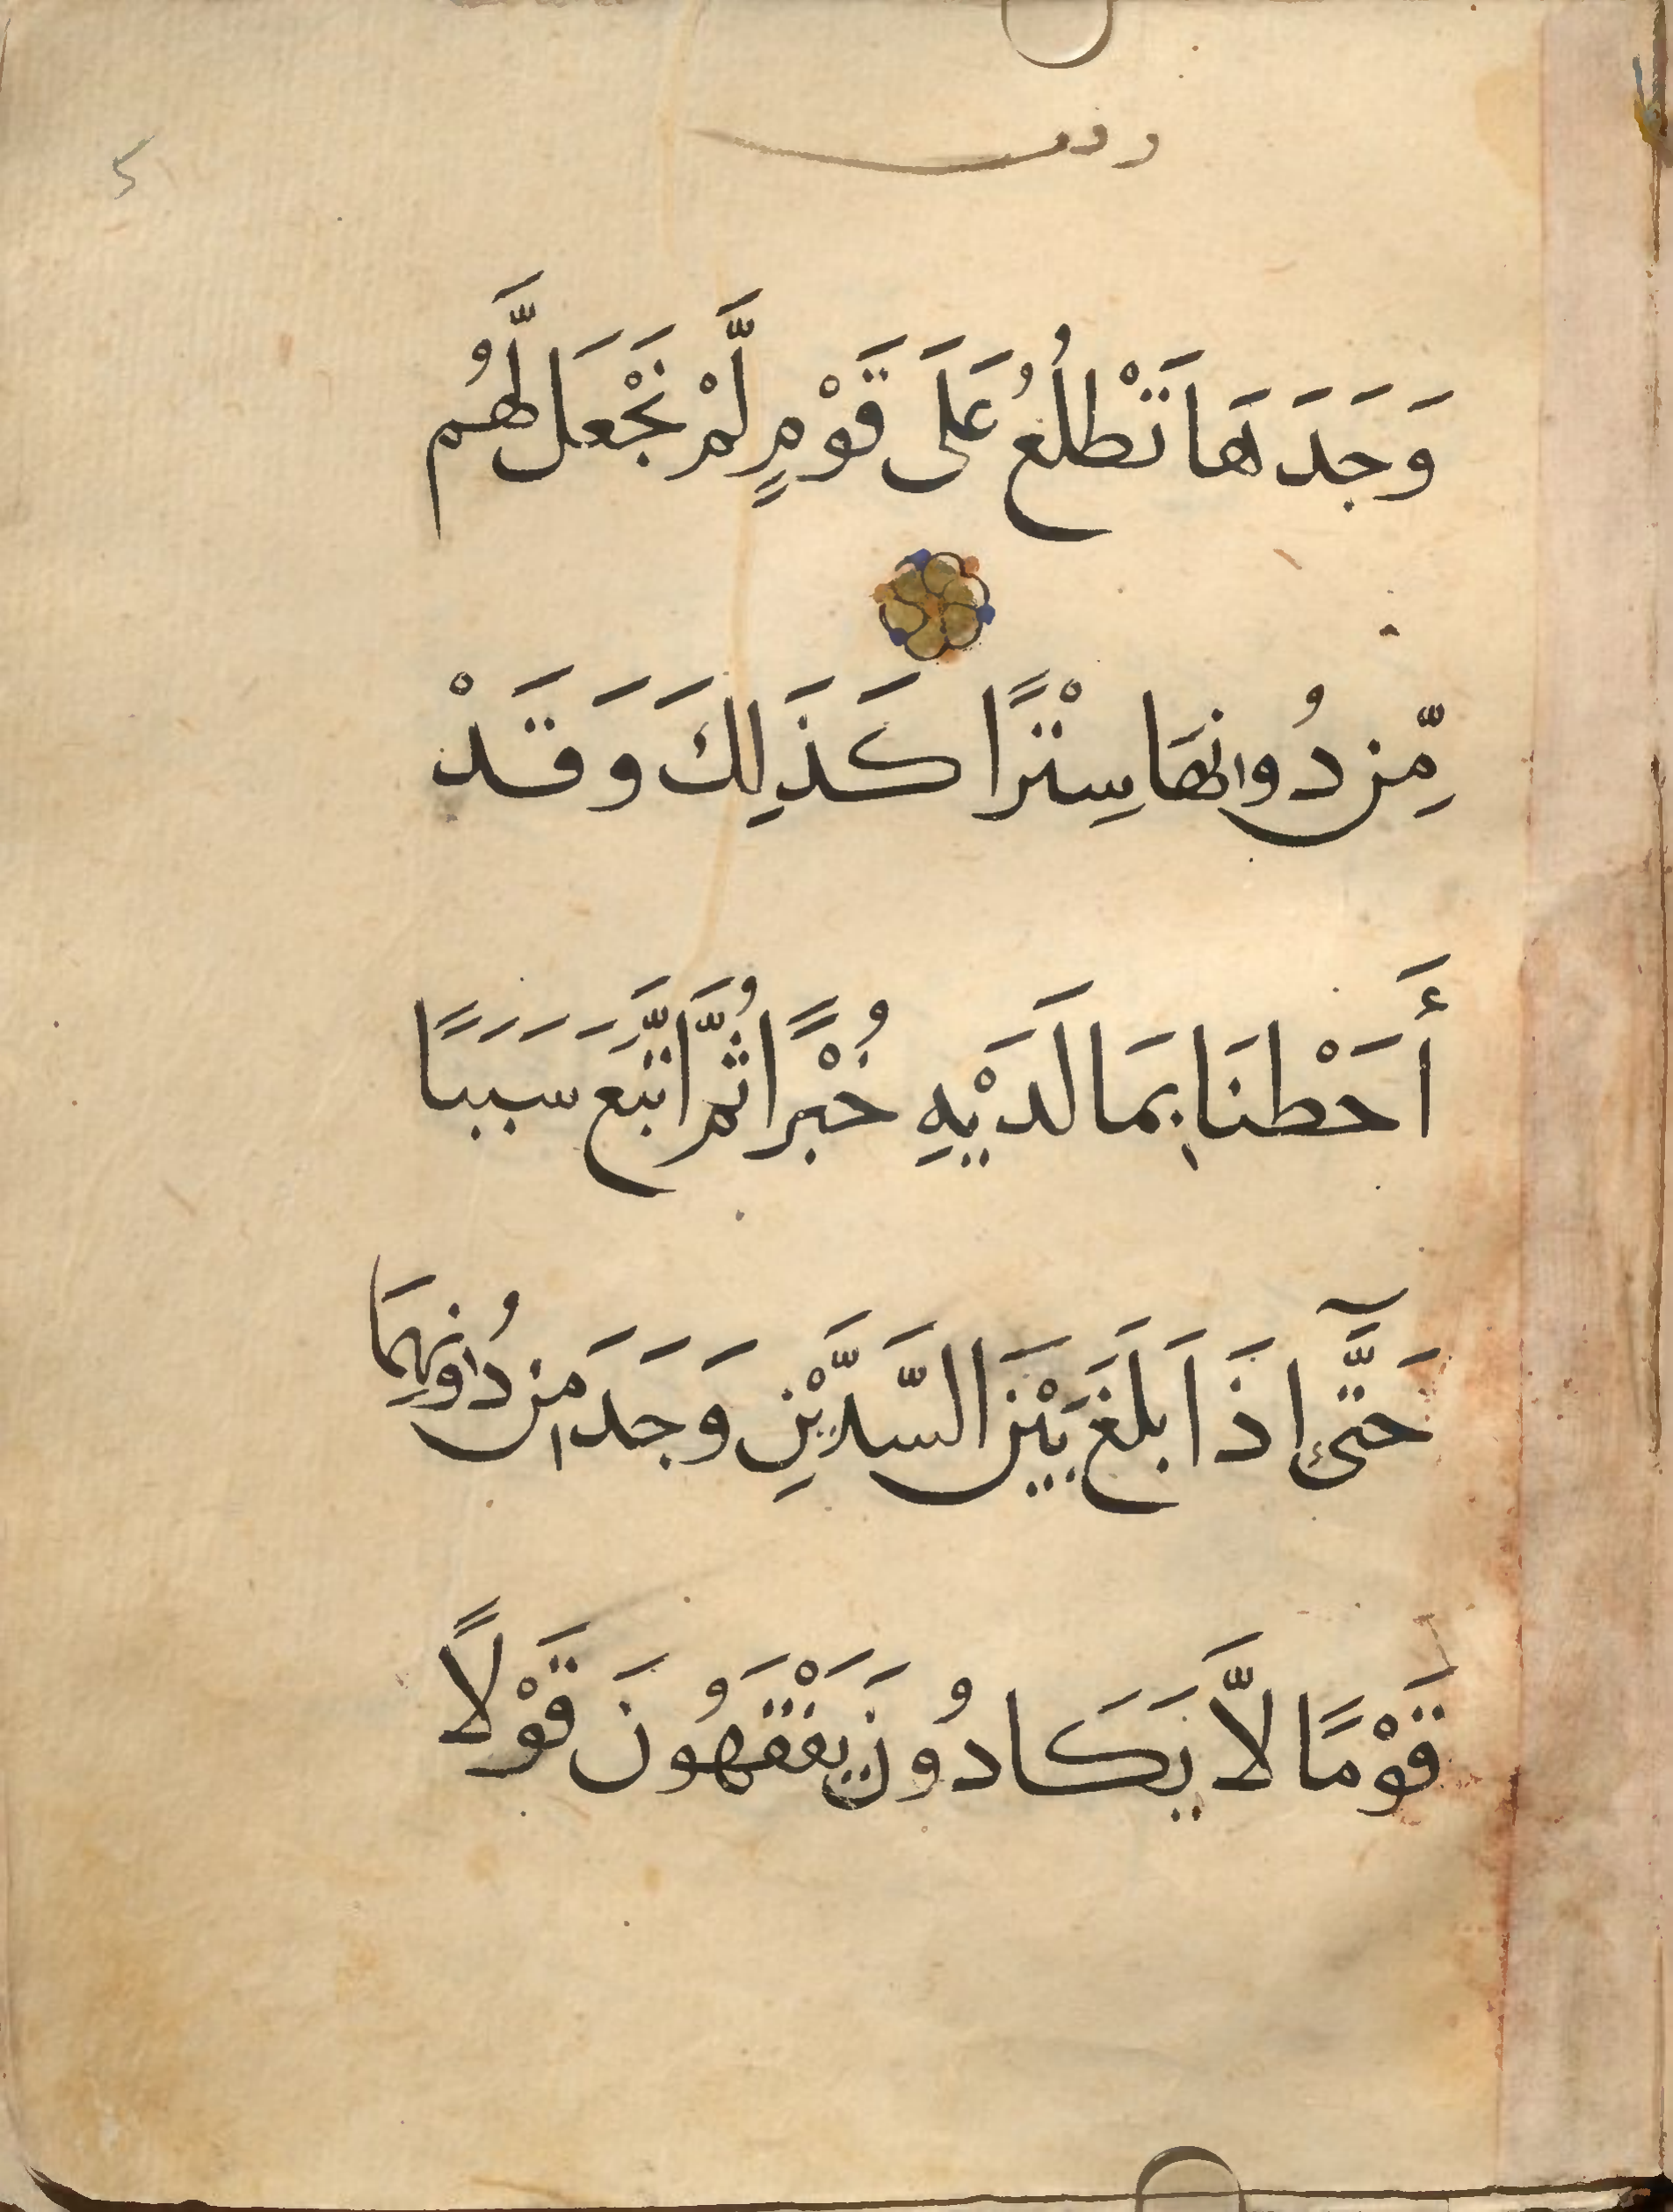 وقف
وَجَدَهَا تَطْلُعُ عَلَى قَوْمٍ لَّمْ نَجْعَل لَّهُم
مِّن دُونِهَا سِتْرًا كَذَلِكَ وَقَدْ
أَحَطْنَا بِمَا لَدَيْهِ خُبْرًا ثُمَّ اتَّبَعَ سَبَبًا
حَتَّىٓ إِذَا بَلَغَ بَيْنَ السَّدَّيْنِ وَجَدَ مِن دُونِهِمَا
قَوْمًا لاَّ يَكَادُونَ يَفْقَهُونَ قَوْلاً